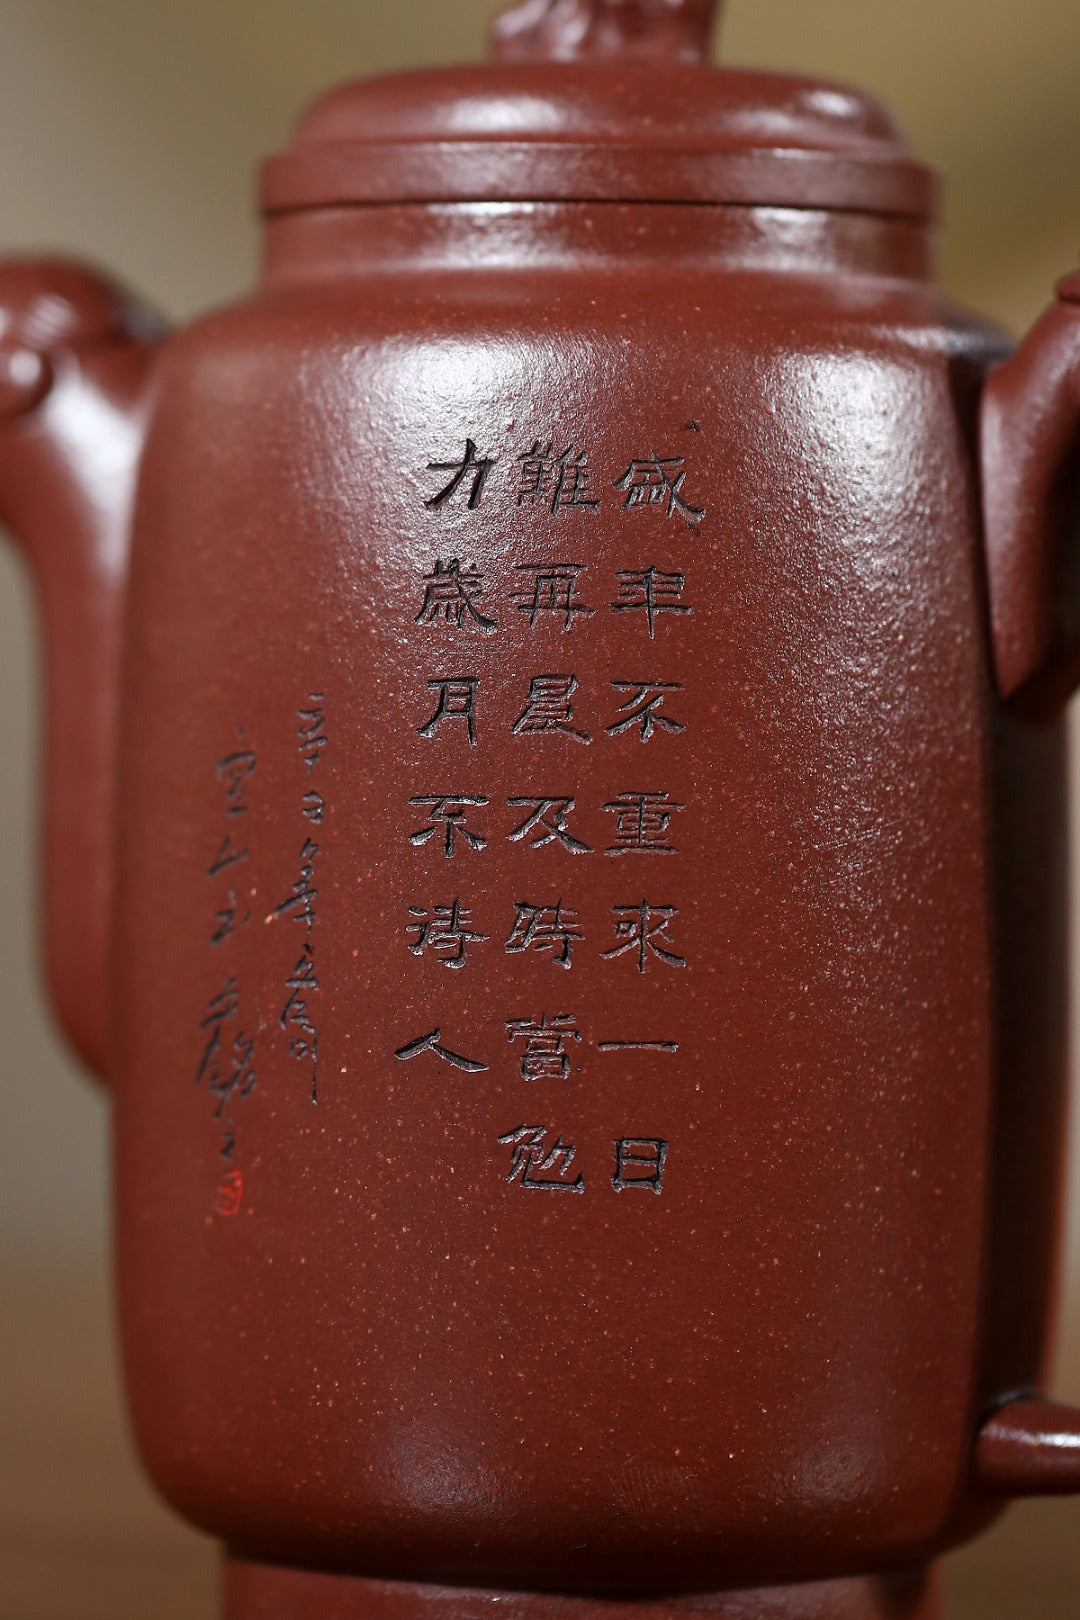 盛年不重來一日
難再晨及時當勉
力歲月不待人
辛丑年